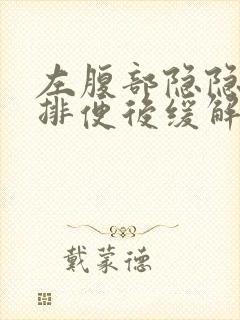 左腹部隐隐
排便後缓解
戴蒙德